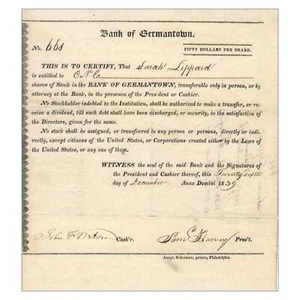 Bank of Germantown.
No. 661
FIFTY DOLLARS PER SHARE.
THIS IS TO CERTIFY, That Sarah Lippard
is entitled to One
shares of Stock in the BANK OF GERMANTOWN, transferable only in person, or by
attorney at the Bank, in the presence of the President or Cashier.
No Stockholder indebted to the Institution, shall be authorized to make a transfer, or
receive a dividend, till such debt shall have been discharged, or security, to the satisfaction of
the Directors, given for the same.
No stock shall be assigned, or transferred to any person or persons, directly or indi-
rectly, except citizens of the United States, or Corporations created either by the Laws of
the United States, or any one of them.
WITNESS the seal of the said Bank and the Signatures
of the President and Cashier thereof, this Twenty
day of December Anno Domini 1839.
John Cash'r. Sam Pres't.
printer, Philadelphia.